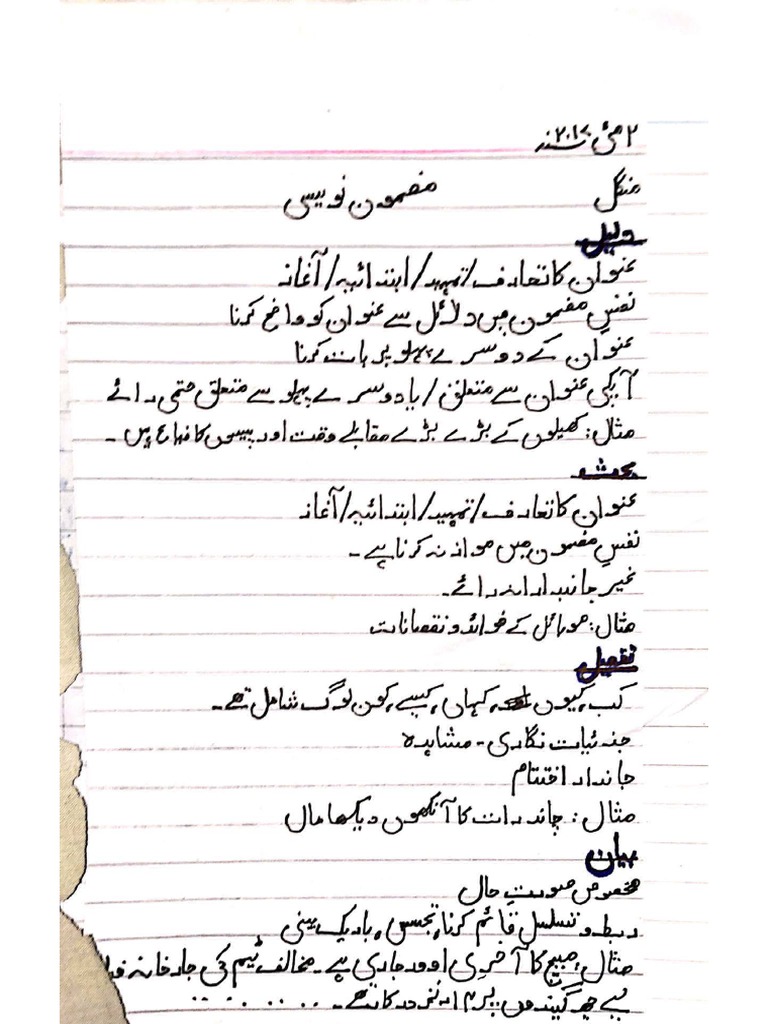 ۲ مئی ۲۰۱۷ سنہ
منگل
مضمون نویسی
دلیل
عنوان کا تعارف/تمہید/ابتدائیہ/آغاز
نفسِ مضمون میں دلائل سے عنوان کو واضح کرنا
عنوان کے دوسرے پہلو پر بات کرنا
آپکی عنوان سے متعلق/یا دوسرے پہلو سے متعلق حتمی رائے
مثال: کھیلوں کے بڑے بڑے مقابلے وقت اور پیسوں کا ضیاع ہیں۔
بحث
عنوان کا تعارف/تمہید/ابتدائیہ/آغاز
نفسِ مضمون میں موازنہ کرنا ہے۔
غیر جانبدارانہ رائے۔
مثال: موبائل کے فوائد و نقصانات
تفصیل
کب، کیوں، کہاں، کیسے، کون لوگ شامل تھے۔
جزئیات نگاری - مشاہدہ
جاندار اختتام
مثال: چاند رات کا آنکھوں دیکھا حال
بیان
مخصوص صورتِ حال
ربط و تسلسل قائم کرنا، تجسس، باریک بینی
مثال: میچ کا آخری اوور جاری ہے۔ مخالف ٹیم کی جارحانہ
نے چھ گیندوں پر ۱۴ رنز درکار تھے۔ . . . . . . . .